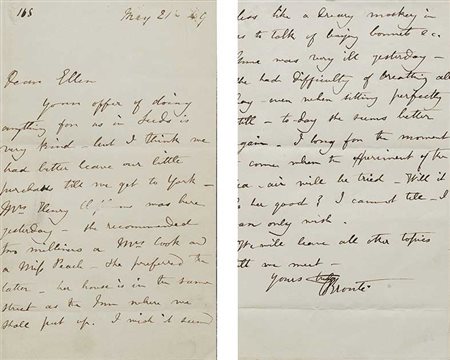 168
May 21st 49
Dear Ellen
Your offer of doing
anything for us in Leeds is
very kind - but I think we
had better leave our little
purchases till we get to York -
Mrs Henry was here
yesterday - she recommended
two milliners a Mrs Cook and
a Miss Peach - she preferred the
latter - her house is in the same
street as the Inn where we
shall put up. I wish it seemed
less like a dreary mockery in
us to talk of buying bonnets &c.
Anne was very ill yesterday -
she had difficulty of breathing all
day - even when sitting perfectly
still - to day she seems better
again. I long for the moment
to come when the experiment of the
sea-air will be tried - Will it
do her good? I cannot tell - I
can only wish.
We will leave all other topics
till we meet -
Yours
CBrontë